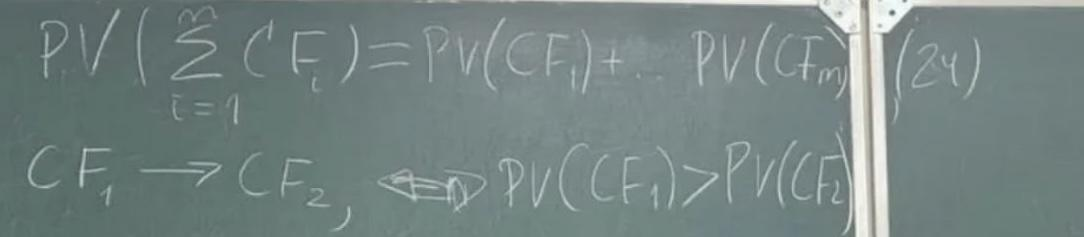 PV(∑_{i=1}^{m} CF_i) = PV(CF_1) + ... PV(CF_m), (24)
CF_1 → CF_2, ⇔ PV(CF_1) > PV(CF_2)